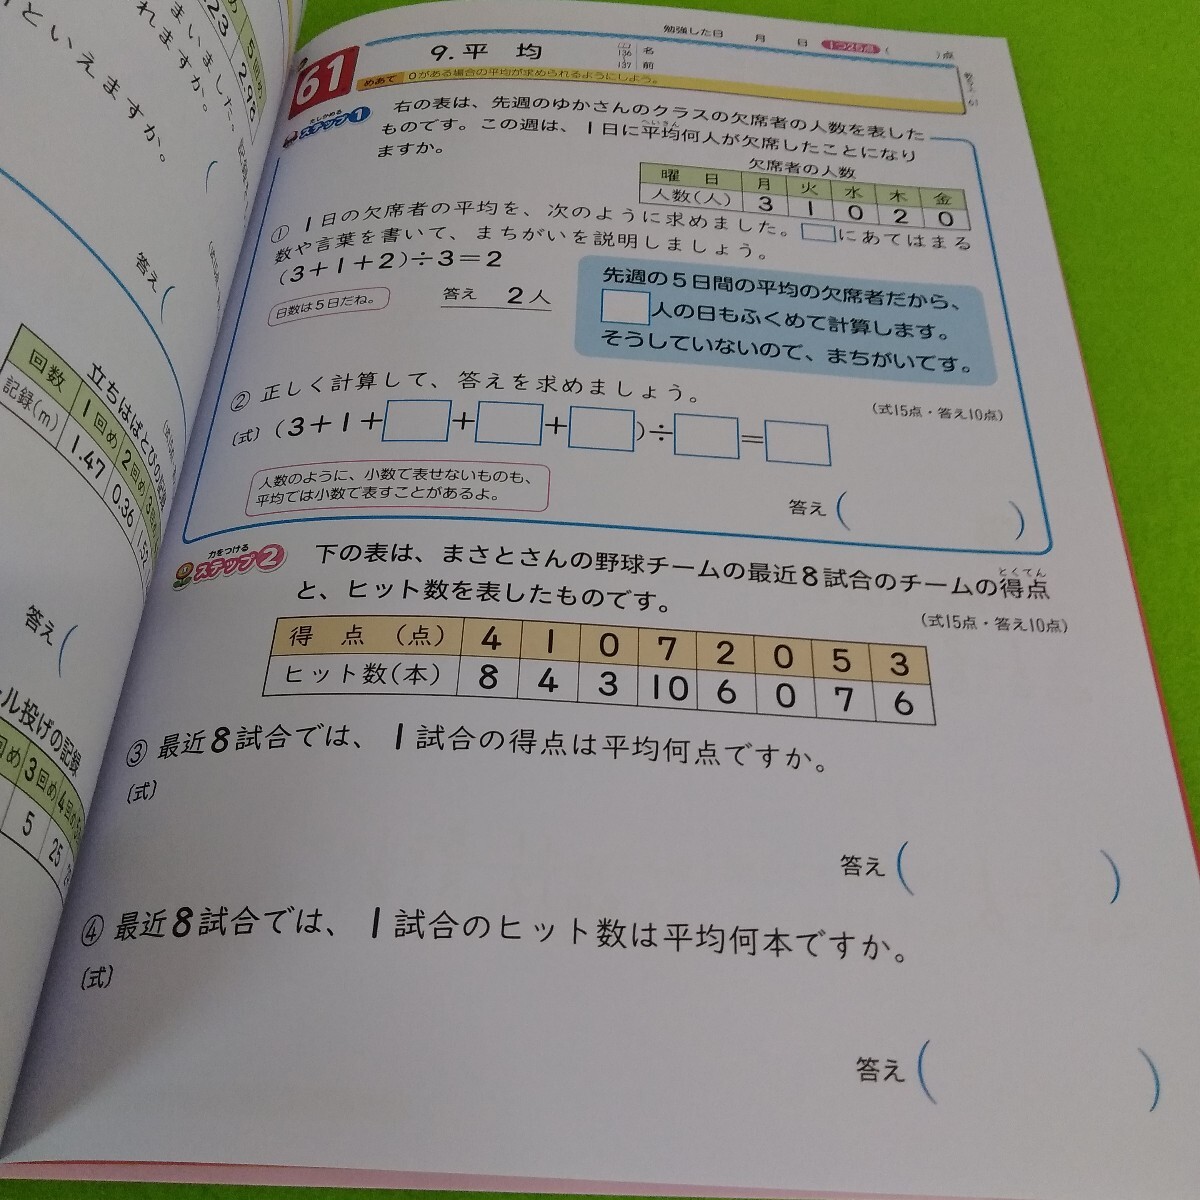 勉強した日　月　日　1つ25点（　）点
61
9.平均
136
137
名
前
めあて 0がある場合の平均が求められるようにしよう。
たしかめる
ステップ1
右の表は、先週のゆかさんのクラスの欠席者の人数を表した
ものです。この週は、1日に平均何人が欠席したことになり
へいきん
ますか。
欠席者の人数
曜日 月 火 水 木 金
人数(人) 3 1 0 2 0
① 1日の欠席者の平均を、次のように求めました。□にあてはまる
数や言葉を書いて、まちがいを説明しましょう。
(3+1+2)÷3=2
日数は5日だね。
答え 2人
先週の5日間の平均の欠席者だから、
□人の日もふくめて計算します。
そうしていないので、まちがいです。
② 正しく計算して、答えを求めましょう。
(式15点・答え10点)
(式) (3+1+□+□+□)÷□=□
人数のように、小数で表せないものも、
平均では小数で表すことがあるよ。
答え（　）
力をつける
ステップ2
下の表は、まさとさんの野球チームの最近8試合のチームの得点
とくてん
と、ヒット数を表したものです。
(式15点・答え10点)
得点(点) 4 1 0 7 2 0 5 3
ヒット数(本) 8 4 3 10 6 0 7 6
③ 最近8試合では、1試合の得点は平均何点ですか。
(式)
答え（　）
④ 最近8試合では、1試合のヒット数は平均何本ですか。
(式)
答え（　）
といえますか。
まいました。
れますか。
答え（
立ちはばとびの記録
回数 1回め 2回め 3回め
記録(m) 1.47 0.36 1.52
答え（
ル投げの記録
回め 3回め 4回め
5 25